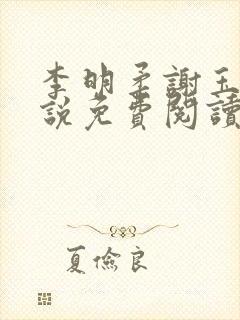 李明柔謝玉
說免費閱讀
夏儉良